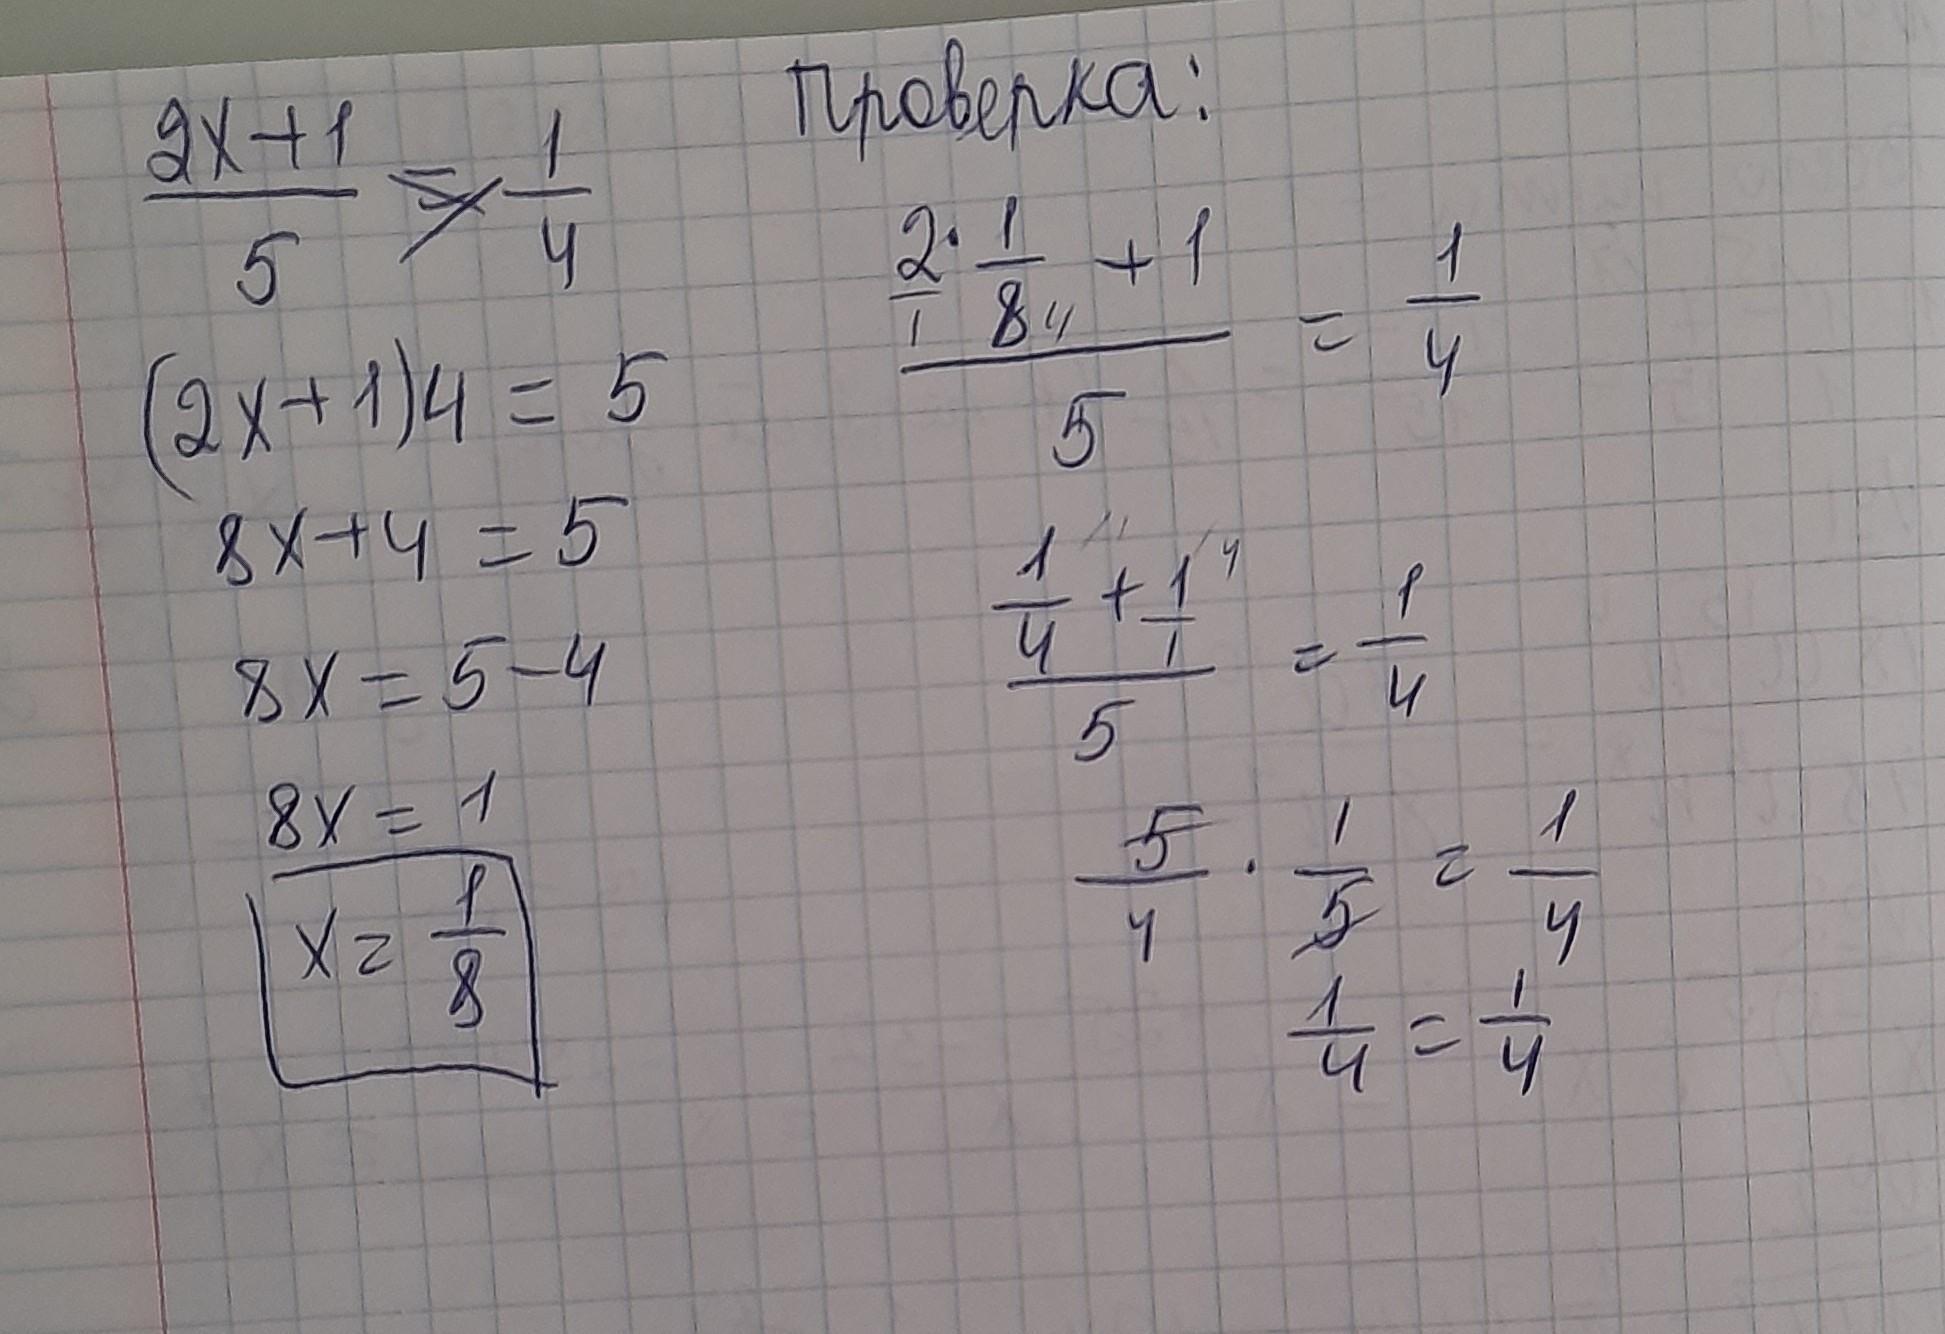 (2x+1)/5 = 1/4
(2x+1)4 = 5
8x+4 = 5
8x = 5-4
8x = 1
x = 1/8
Проверка:
(2/1 · 1/8 4 + 1)/5 = 1/4
(1/4 /1 + 1/1 /4)/5 = 1/4
5/4 · 1/5 = 1/4
1/4 = 1/4